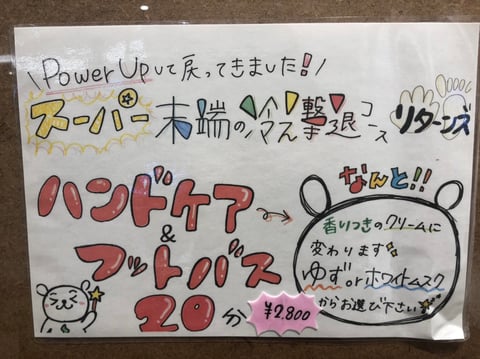 \Power Upして戻ってきました!/
スーパー末端の冷え撃退コース リターンズ
ハンドケア
&
フットバス
20分
¥2,800
なんと!!
香りつきのクリームに
変わります
ゆずorホワイトムスク
からお選び下さい